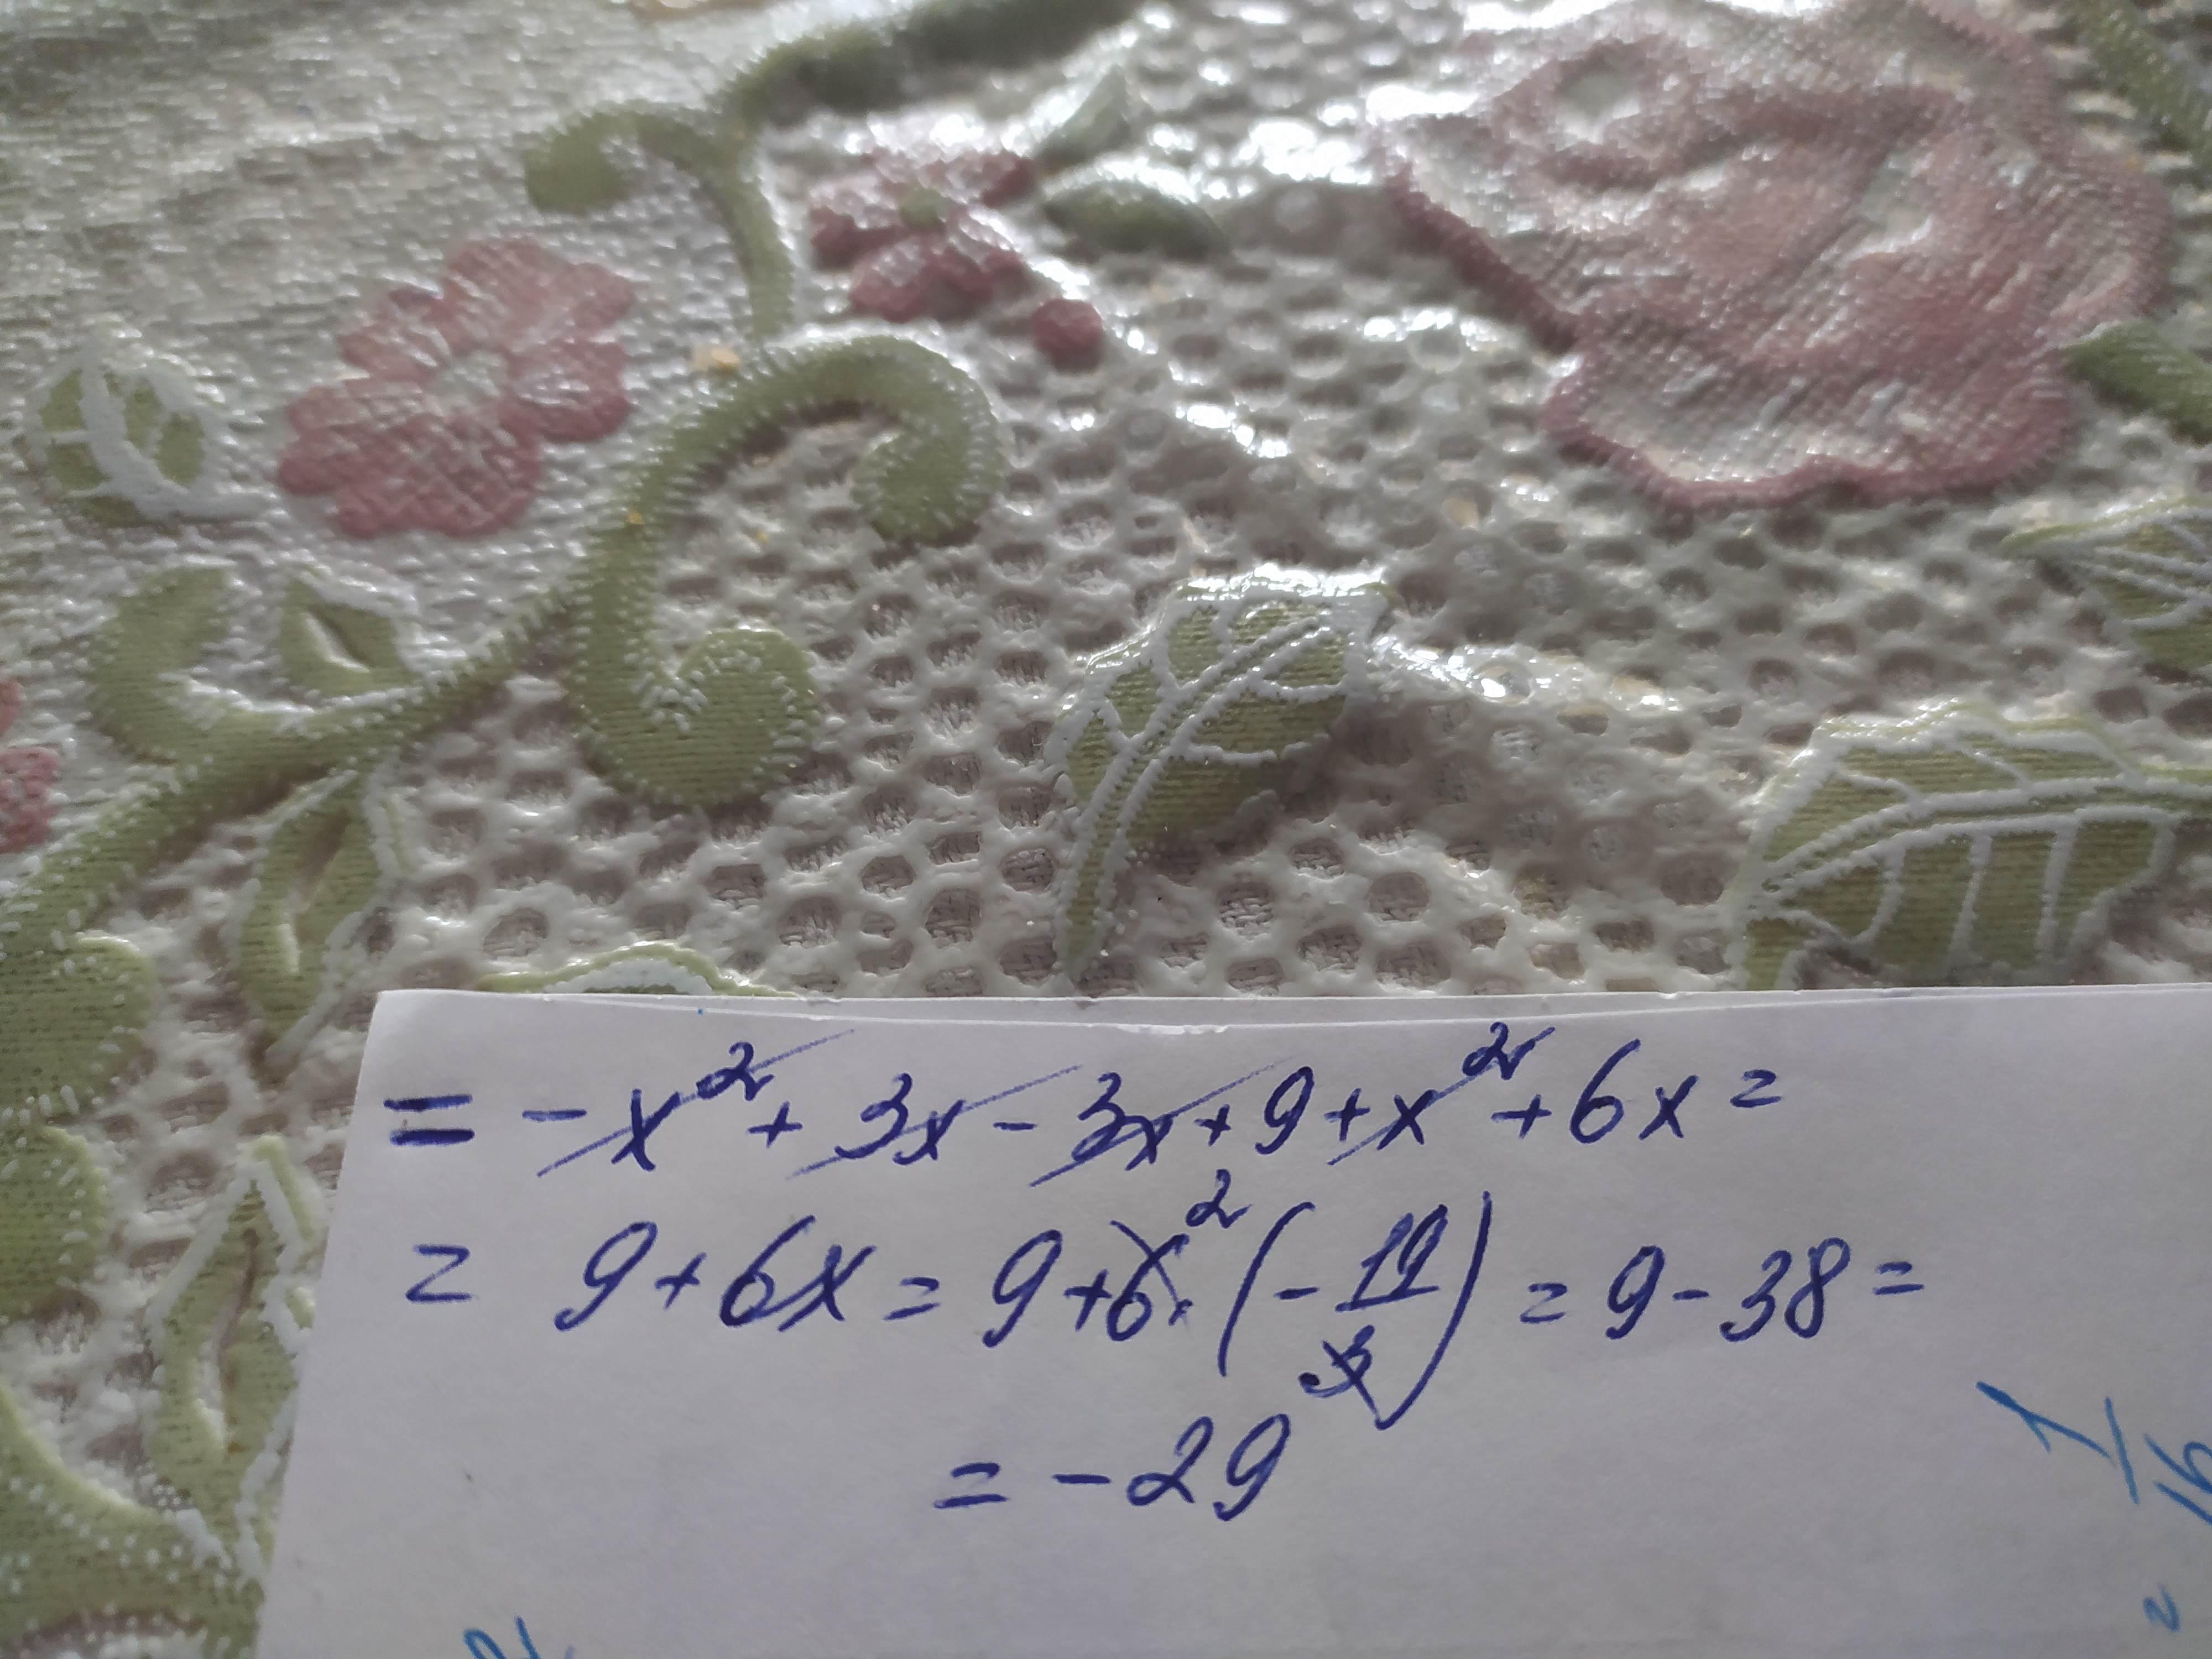 = -x² + 3x - 3x + 9 + x² + 6x =
= 9 + 6x = 9 + 6² · (-19/3) = 9 - 38 =
= -29